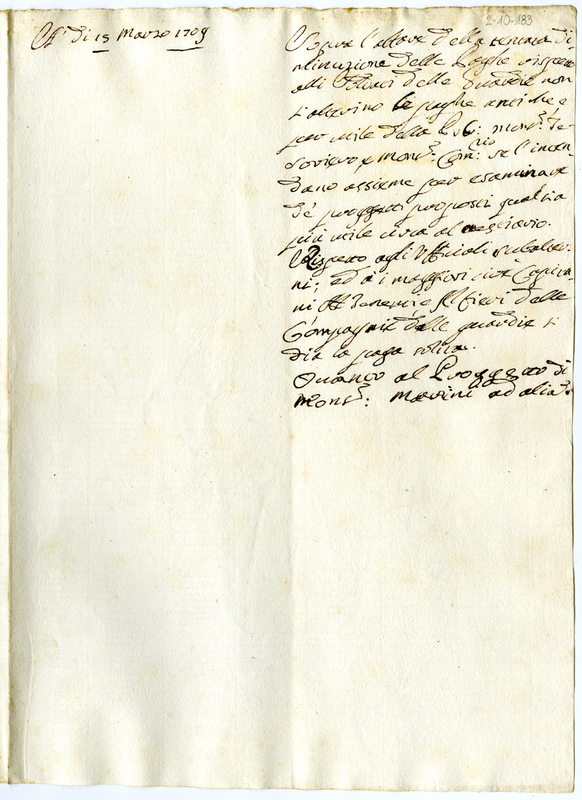 2-10-183
A' dì 15 Marzo 1709
Sopra l'affare della
minuzione delle Paghe rispetto
alli delle Guardie non
si alterino le paghe anzi che
per utile della R. C.: Mons.r Te-
soriero e Mons.r Com.rio se l'inten-
dano assieme per esaminare
de' progetti proposti qual sia
più utile circa al
Rispetto agli Uffiziali subalter-
ni, ed à i maggiori cioè Capita-
ni Tenenti e Alfieri delle
Compagnie delle guardie si
dia la paga solita.
Quanto al Proggetto di
Mons.r: Marini ad alia